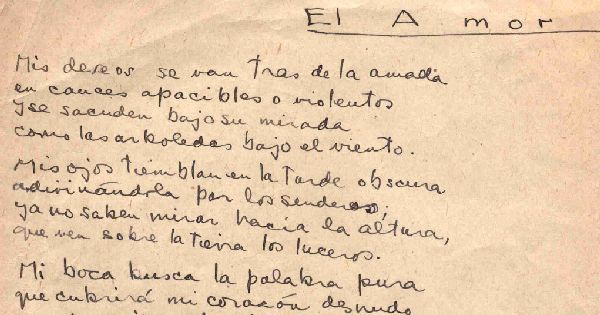 El Amor
Mis deseos se van tras de la amada
en cauces apacibles o violentos
y se sacuden bajo su mirada
como las arboledas bajo el viento.
Mis ojos tiemblan en la tarde obscura
adivinándola por los senderos;
ya no saben mirar hacia la altura,
que ven sobre la tierra los luceros.
Mi boca busca la palabra pura
que cubrirá mi corazón desnudo